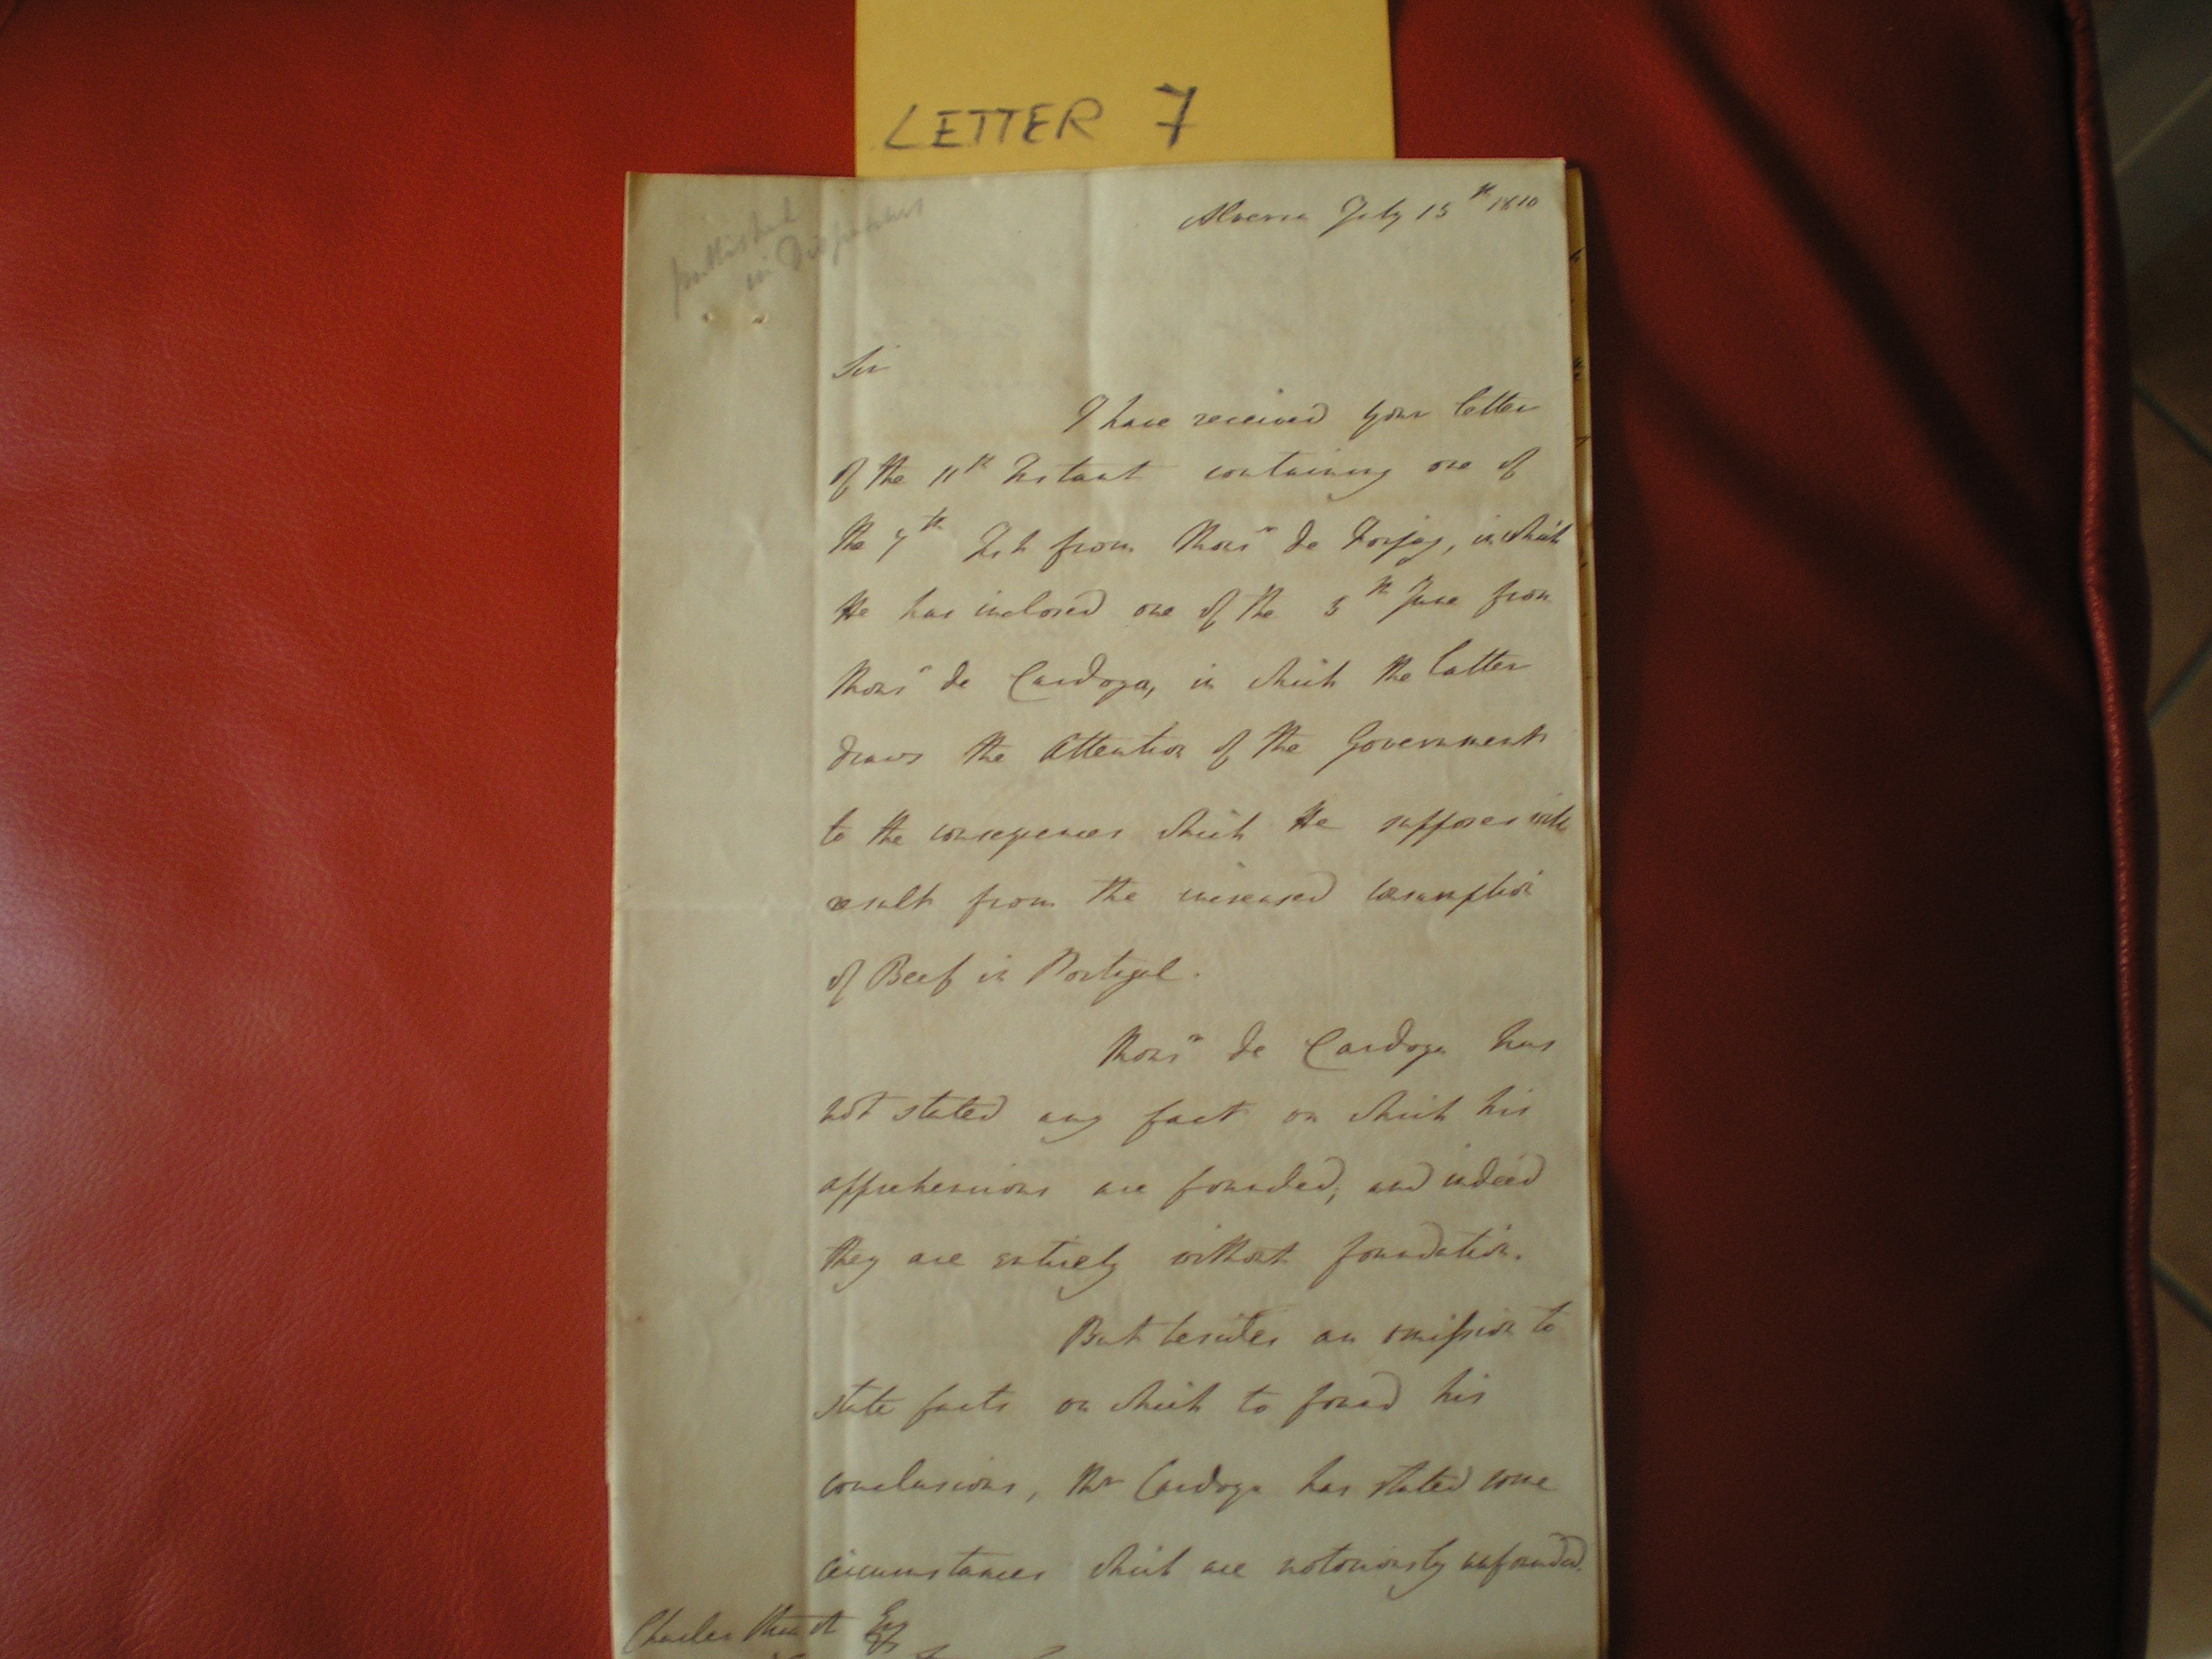 LETTER 7
published
in Dispatches
Alverca July 15th 1810
Sir
I have received your letter
of the 11th Instant containing one of
the 7th Inst from Monsr de Forjaz, in which
He has inclosed one of the 5th June from
Monsr de Cardoza, in which the latter
draws the Attention of the Government
to the consequences which He supposes will
result from the increased consumption
of Beef in Portugal.
Monsr de Cardoza has
not stated any fact on which his
apprehensions are founded; and indeed
they are entirely without foundation.
But besides an omission to
state facts on which to found his
conclusions, Mr Cardoza has stated some
circumstances which are notoriously unfounded.
Charles Stuart Esq